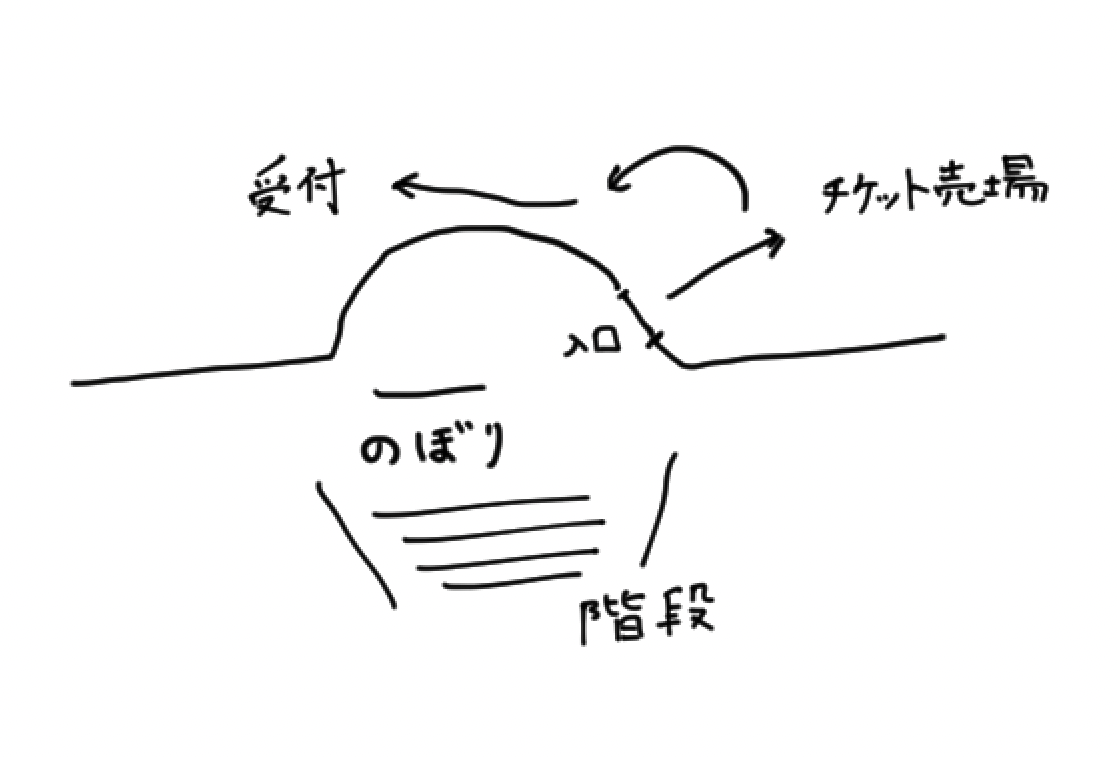 受付
チケット売場
入口
のぼり
階段